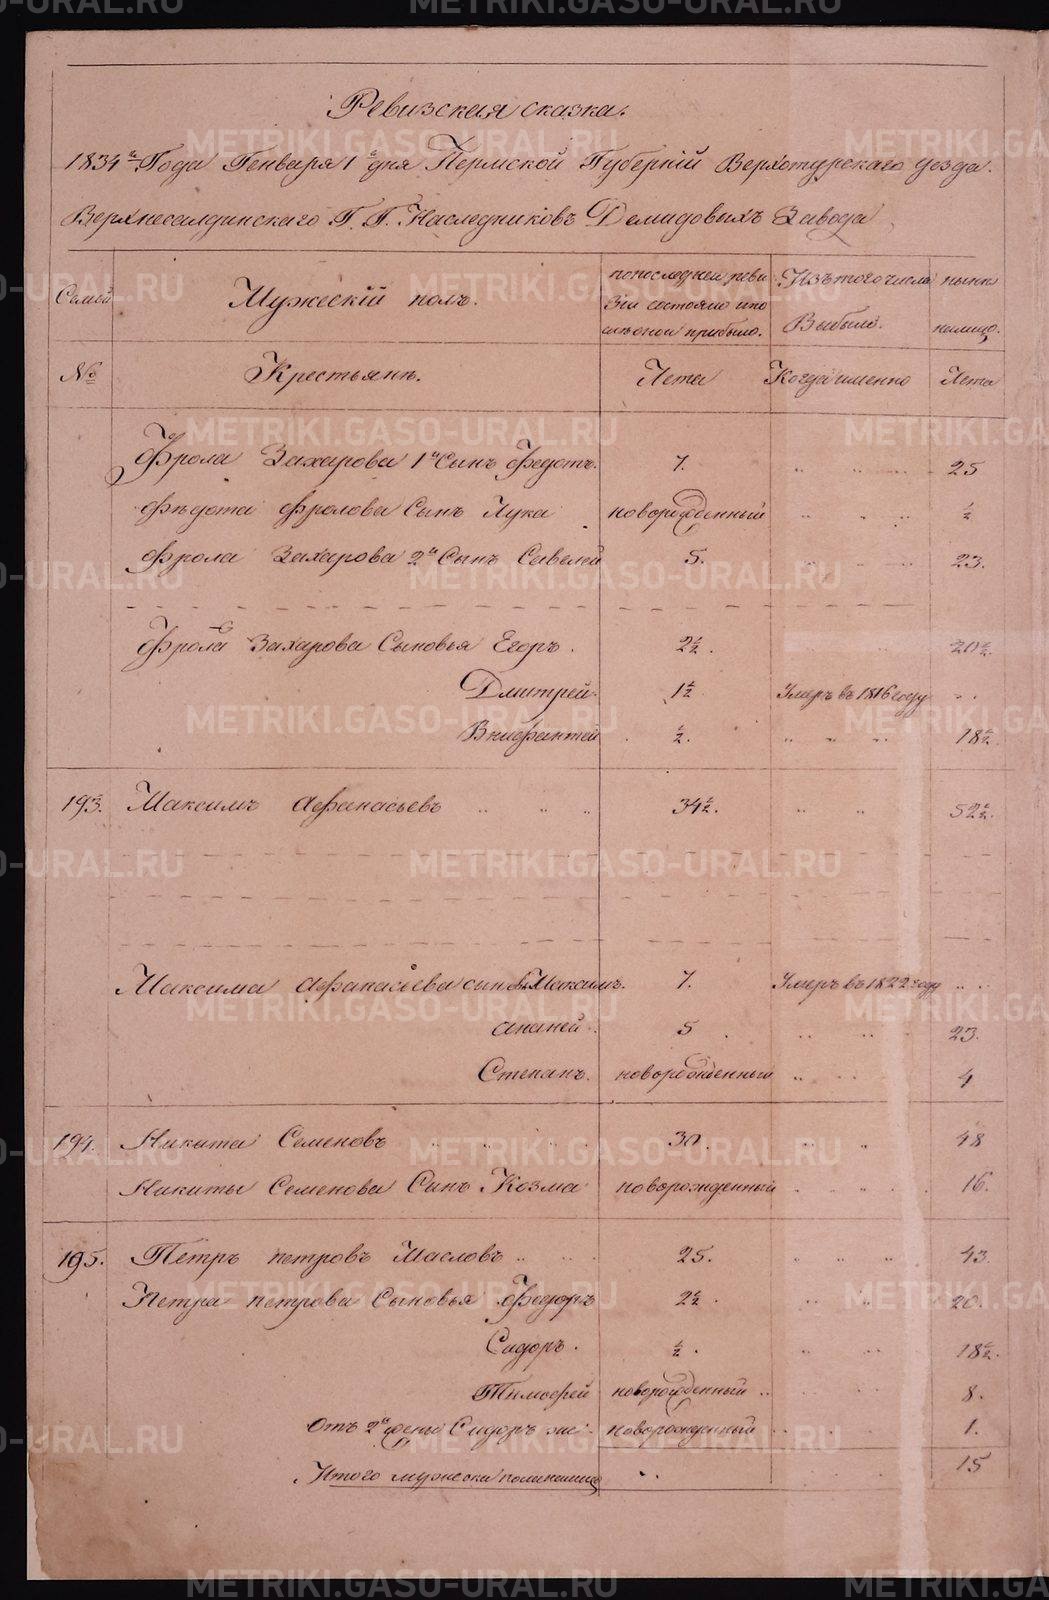 Ревизская сказка.
1834 Года Генваря 1 дня Пермской Губерній Верхотурскаго уезда.
Верхнесалдинскаго Г. Г. Наследниковъ Демидовыхъ Завода
Семьи Мужескій полъ. попоследней реви зіи состояло ипо слѣоной прибыло. Изътогочисла Выбыло. нынѣ налицо.
№ Крестьянѣ. Лета Когда именно Лета
Фрола Захарова 1й Сынъ Федотъ. 7. 25
Фѣдота Фролова Сынъ Лука новорожденный ½
Фрола Захарова 2й Сынъ Савелей 5. 23.
Фрола Захарова Сыновья Егоръ. 2½. 20½.
Дмитрей. 1½. Умеръ въ 1816 году
Внифантей ½. 18½.
193. Максимъ Афанасьевъ 34½. 52½.
Максима Афанасьева Максимъ. 7. Умеръ въ 1822 году
Ананей. 5 23.
Степанъ. новорожденный 4
194. Никита Семеновъ 30. 48
Никиты Семенова Сынъ Козма новорожденный 16.
195. Петръ петровъ Масловъ 25. 43.
Петра петрова Сыновья Федоръ 2½. 20.
Сидоръ. ½. 18½.
Тимофей новорожденный 8.
отъ 2й жены Сидоръ же новорожденный 1.
Итого мужеска пола налицо 15